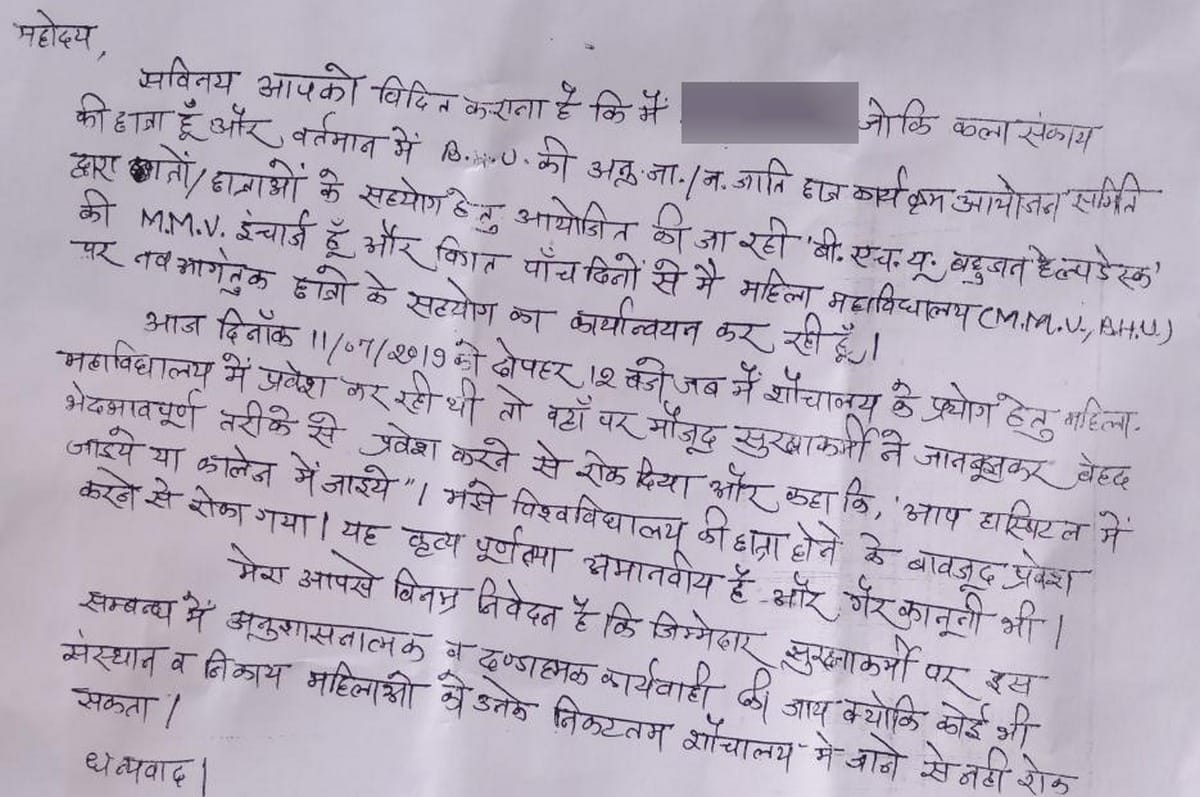 महोदय,
सविनय आपको विदित कराना है कि मैं जोकि कला संकाय
की छात्रा हूँ और वर्तमान में B.H.U. की अनु.जा./ज.जाति छात्र कार्यक्रम आयोजन समिति
द्वारा छात्रों/छात्राओं के सहयोग हेतु आयोजित की जा रही 'बी.एच.यू. बहुजन हेल्पडेस्क'
की M.M.V. इंचार्ज हूँ और विगत पाँच दिनों से मै महिला महाविद्यालय (M.M.V., B.H.U.)
पर नव आगंतुक छात्रो के सहयोग का कार्यान्वयन कर रही हूँ।
आज दिनाँक 11/07/2019 को दोपहर 12 बजे जब मैं शौचालय के प्रयोग हेतु महिला-
महाविद्यालय में प्रवेश कर रही थी तो वहाँ पर मौजूद सुरक्षाकर्मी ने जानबूझकर बेहद
भेदभावपूर्ण तरीके से प्रवेश करने से रोक दिया और कहा कि, 'आप हास्पिटल में
जाइये या कालेज में जाइये"। मुझे विश्वविद्यालय की छात्रा होने के बावजूद प्रवेश
करने से रोका गया। यह कृत्य पूर्णतया अमानवीय है और गैर कानूनी भी।
मेरा आपसे विनम्र निवेदन है कि जिम्मेदार सुरक्षाकर्मी पर इस
सम्बन्ध में अनुशासनात्मक व दण्डात्मक कार्यवाही की जाय क्योकि कोई भी
संस्थान व निकाय महिलाओं को उनके निकटतम शौचालय में जाने से नही रोक
सकता।
धन्यवाद।